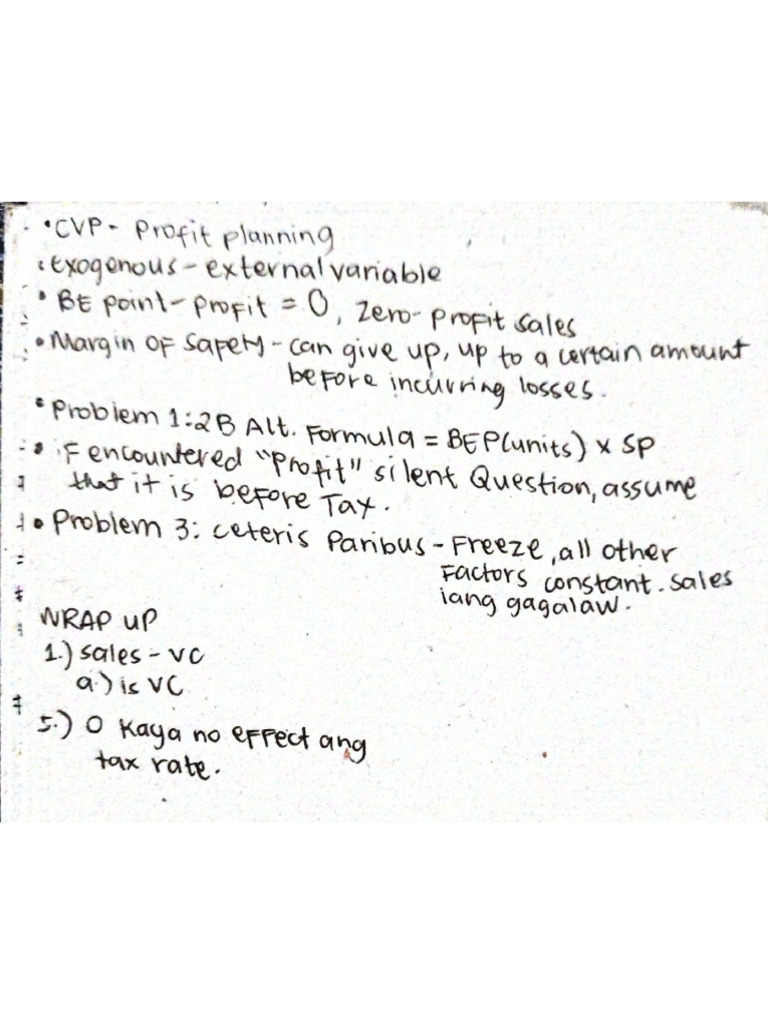 • CVP - Profit planning
• Exogenous - external variable
• BE point - profit = 0, Zero-profit sales
• Margin OF Safety - can give up, up to a certain amount
before incurring losses.
• Problem 1: 2B Alt. Formula = BEP(units) x SP
• if encountered "Profit" silent Question, assume
that it is before Tax.
• Problem 3: ceteris Paribus - Freeze, all other
Factors constant. sales
iang gagalaw.
WRAP UP
1.) sales - VC
a.) is VC
5.) 0 kaya no effect ang
tax rate.